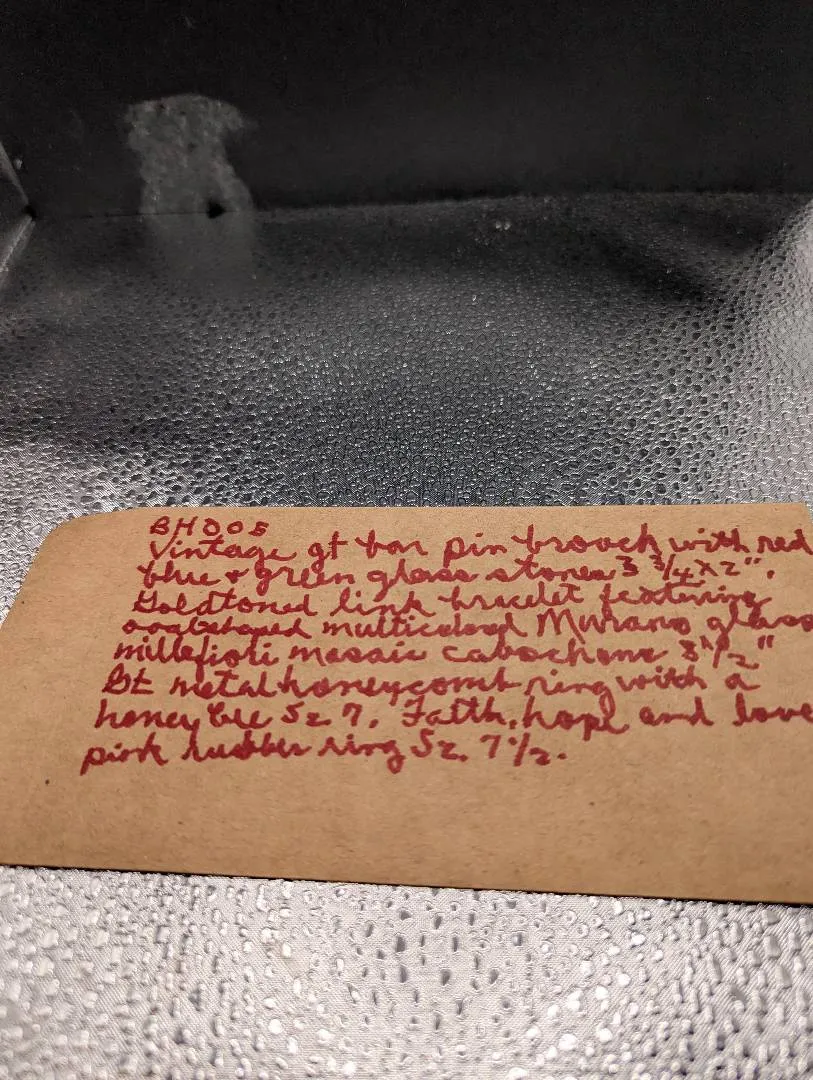 BH005
Vintage gt bar pin brooch with red
blue + green glass stones 3 3/4 x 2".
Goldtoned link bracelet featuring
multicolored Murano glass
millefiori mosaic cabochons 8 1/2"
metal honeycomb ring with a
honey bee Sz 7. Faith, hope and love
pink rubber ring Sz. 7 1/2.